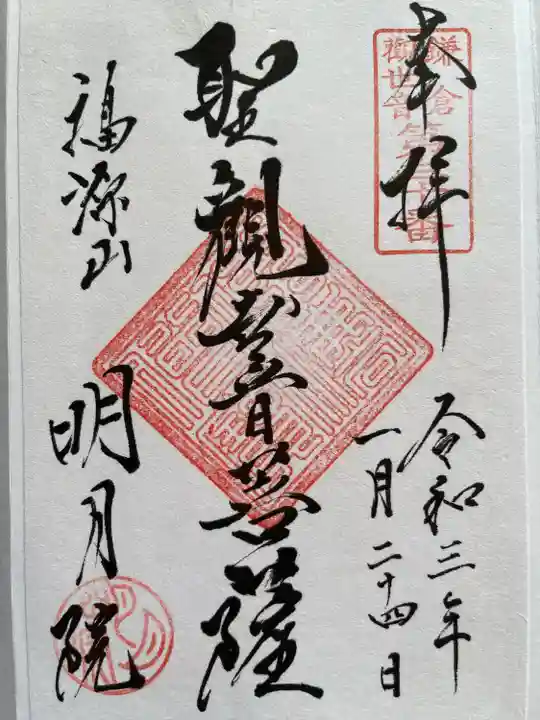 奉拝
鎌倉
観世音第三十番
令和三年
一月二十四日
聖観世音菩薩
福源山
明月院